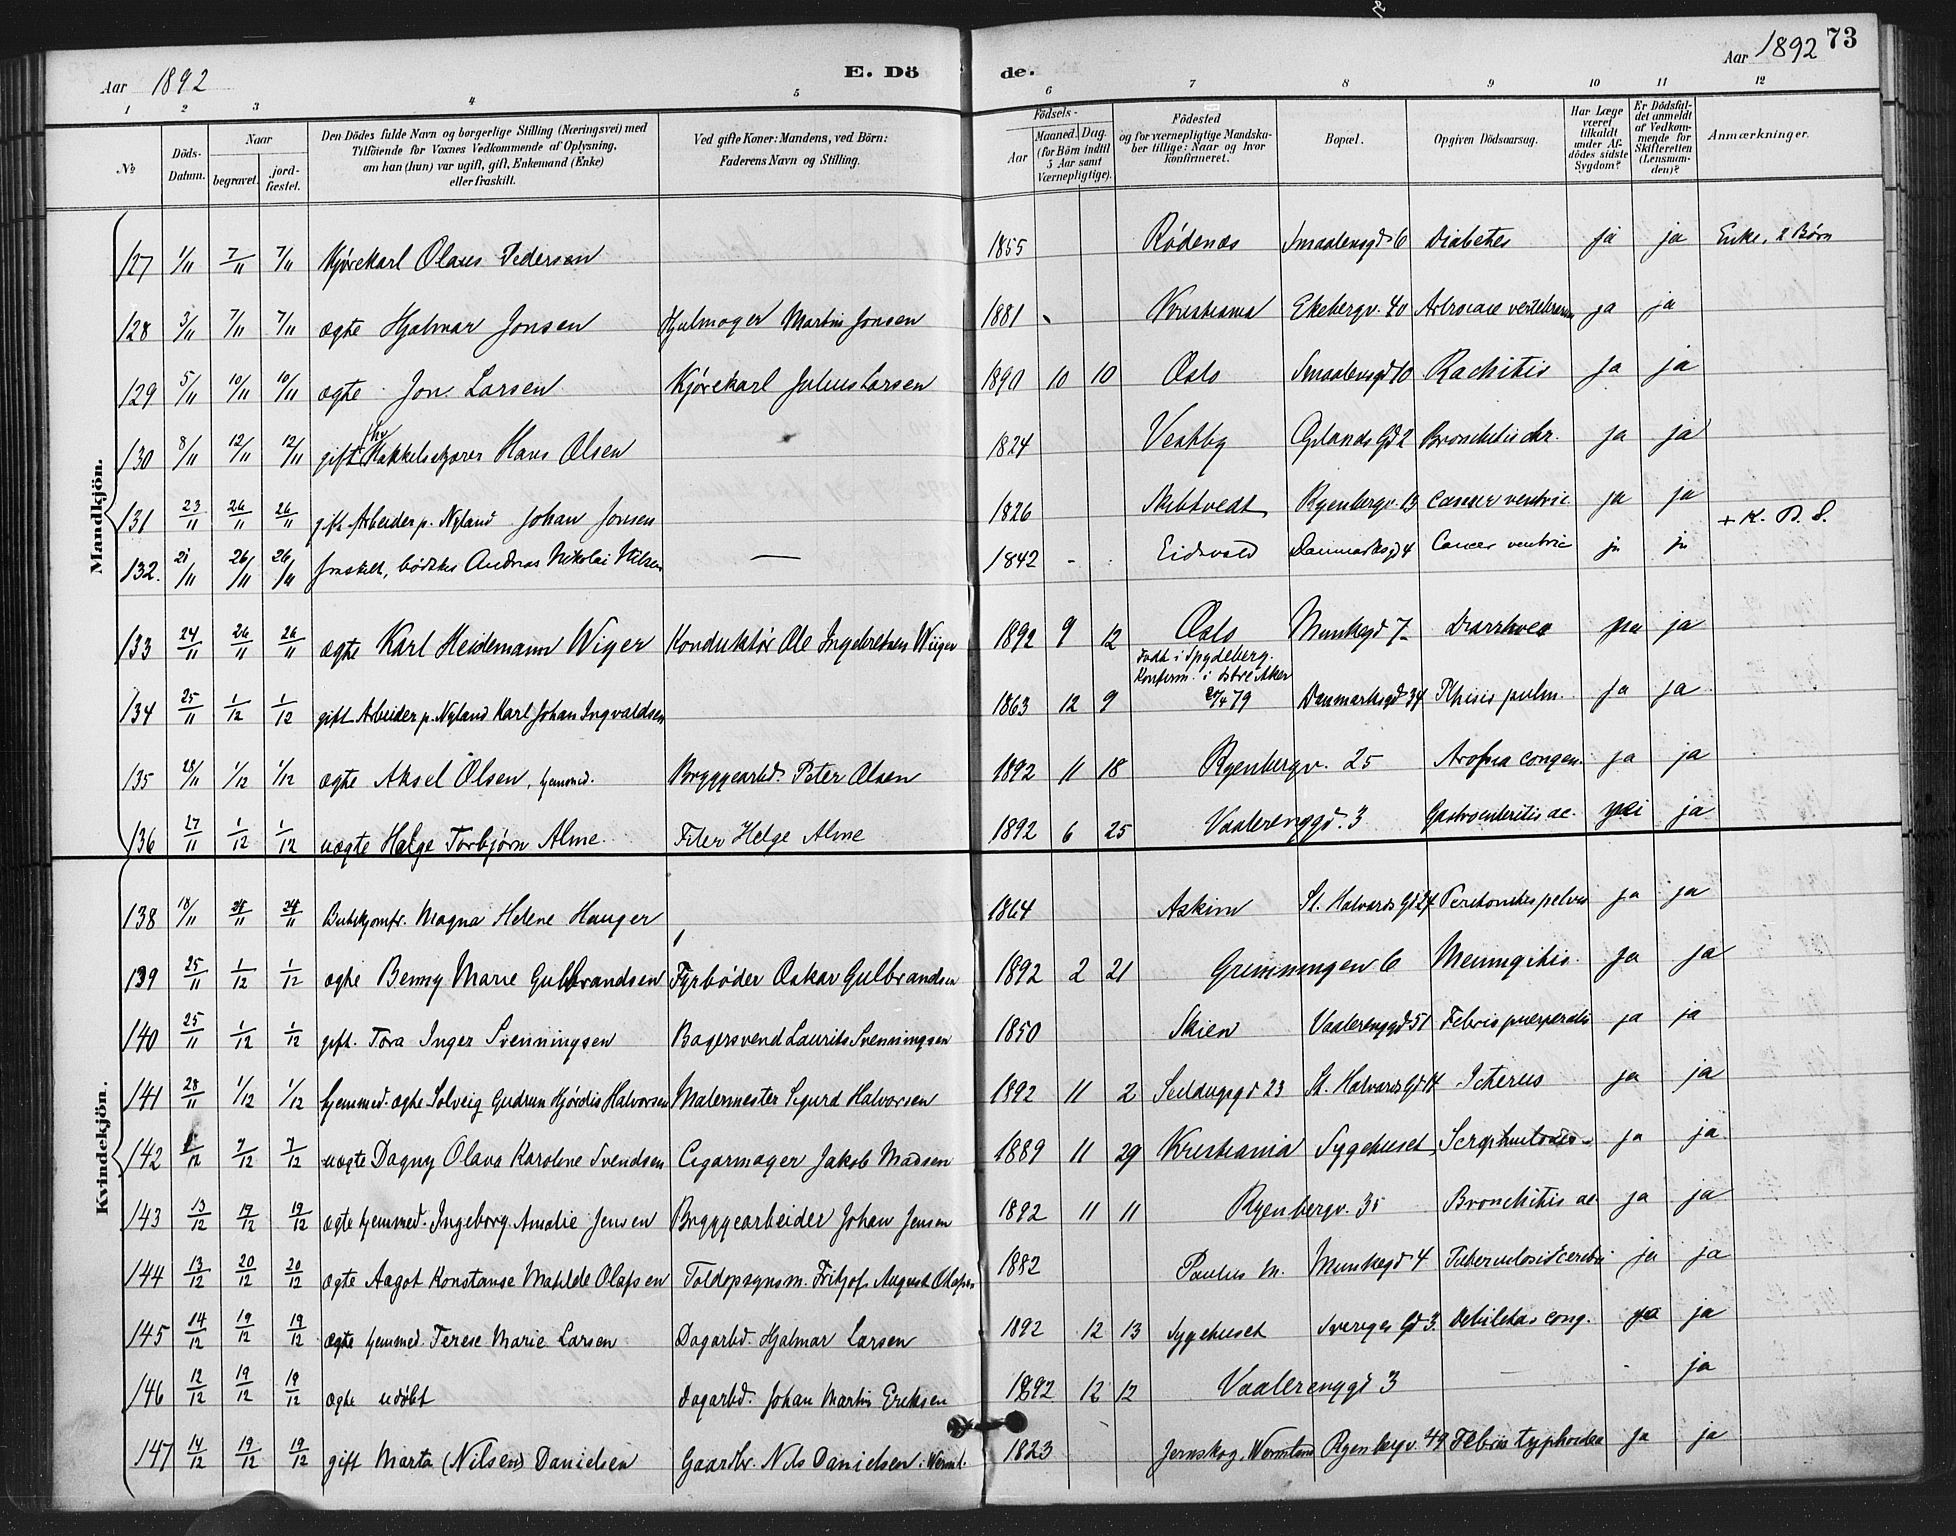 Aar 1892 E. Dö de. Aar 1892 73
1 2 3 4 5 6 7 8 9 10 11 12
No
Döds-Datum.
Naar
begravet.
jord-fæstet.
Den Dödes fulde Navn og borgerlige Stilling (Næringsvei) med
Tilföiende for Voxnes Vedkommende af Oplysning,
om han (hun) var ugift, gift, Enkemand (Enke)
eller fraskilt.
Ved gifte Koner: Mandens, ved Börn:
Faderens Navn og Stilling.
Födsels-
Aar
Maaned. Dag.
(for Börn indtil
5 Aar samt
Værnepligtige).
Födested
og for værnepligtige Mandska-
ber tillige: Naar og hvor
Konfirmeret.
Bopæl.
Opgiven Dödsaarsag.
Har Læge
været
tilkaldt
under Af-
dödes sidste
Sygdom?
Er Dödsfal-
det anmeldt
af Vedkom-
mende for
Skifteretten
(Lensman-
den)?
Anmærkninger.
Mandkjön.
127 1/11 7/11 7/11 Kjørekarl Olaus Pedersen 1855 Rødenæs Smaalensgd 6 Diabetes ja ja Enke, 2 Børn
128 3/11 7/11 7/11 ægte Hjalmar Jonsen Hjulmager Martin Jonsen 1881 Kristiania Ekebergv. 40 ja ja
129 5/11 10/11 10/11 ægte Jon Larsen Kjørekarl Julius Larsen 1890 10 10 Oslo Smaalensgd 10 Rachitis ja ja
130 8/11 12/11 12/11 gift Hakkelseskjærer Hans Olsen 1824 Vestby Grlands Gd 2 Bronchitis chr. ja ja
131 23/11 26/11 26/11 gift Arbeider p. Nyland Johan Jonsen 1826 Skibtvedt Ryenbergv. 13 Cancer ventric. ja ja
132. 21/11 26/11 26/11 fraskilt, bødker Andreas Nikolai Nilsen — 1842 - Eidsvold Danmarksgd 4 Cancer ventric ja ja + K. D. S.
133 24/11 26/11 26/11 ægte Karl Heidemann Wiger Konduktør Ole Ingebretsen Wiiger 1892 9 12 Oslo Munkegd 7 Diarrhoea ja ja
134 25/11 1/12 1/12 gift Arbeider p. Nyland Karl Johan Ingvaldsen 1863 12 9 Født i Spydeberg. Konfirm. i østre Aker 20/4 79 Danmarksgd 34 Pthisis pulm. ja ja
135 28/11 1/12 1/12 ægte Aksel Olsen, hjemmed. Bryggearbd. Peter Olsen 1892 11 18 Ryenbergv. 25 congen. ja ja
136 27/11 1/12 1/12 uægte Helge Torbjørn Alme. Filer Helge Alme 1892 6 25 Vaalerenggd. 3 Gastroenteritis ac. ja
Kvindekjön.
138 18/11 24/11 24/11 Magna Helene Hauger 1864 Askim St. Halvards Gd 24 ja ja
139 25/11 1/12 1/12 ægte Benny Marie Gulbrandsen Fyrbøder Oskar Gulbrandsen 1892 2 21 Grønningen 6 Meningitis. ja ja
140 25/11 1/12 1/12 gift. Tora Inger Svenningsen Bagersvend Laurits Svenningsen 1850 Skien Vaalerenggd 51 Febris puerperalis ja ja
141 28/11 1/12 1/12 hjemmed. ægte Solveig Gudrun Hjørdis Halvorsen Malermester Sigurd Halvorsen 1892 11 2 Seildugsgd 23 St. Halvards Gd 14 Icterus ja ja
142 1/12 7/12 7/12 uægte Dagny Olava Karoline Svendsen Cigarmager Jakob Madsen 1889 11 29 Kristiania Sygehuset ja ja
143 13/12 19/12 19/12 ægte hjemmed. Ingeborg Amalie Jensen Bryggearbeider Johan Jensen 1892 11 11 Ryenbergv. 35 Bronchitis ac ja ja
144 13/12 20/12 20/12 ægte Aagot Konstanse Matilde Olafsen Toldopsynsm. Fritjof August Olafsen 1882 Paulus M. Munkegd 4 ja ja
145 14/12 19/12 19/12 ægte hjemmed. Terese Marie Larsen Dagarbd. Hjalmar Larsen 1892 12 13 Sygehuset Sveriges Gd 3. Debilitas cong. ja ja
146 12/12 19/12 19/12 ægte udøbt Dagarbd. Johan Martin Eriksen 1892 12 12 Vaalerenggd 3 — - ja
147 14/12 19/12 19/12 gift Marta (Nilsen) Danielsen Gaardbr. Nils Danielsen i Werml. 1823 Jernskog, Wermland Ryenbergv. 49 Febris typhoidea ja ja